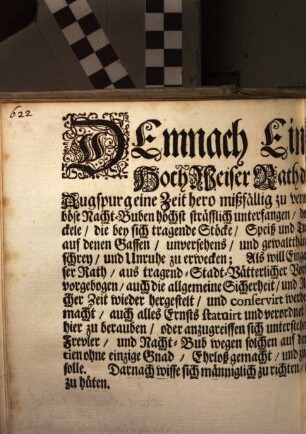 622
DEmnach Ein
Hoch Weiser Rath d
Augspurg eine Zeit hero mißfällig zu ver
böse Nacht-Buben höchst sträfflich unterfangen / d
ckele / die bey sich tragende Stöcke / Spieß und
auf denen Gassen / unversehens / und gewaltth
schrey / und Unruhe zu erwecken; Als will
ser Rath / aus tragend-Stadt-Vätterlicher Vor
vorgebogen / auch die allgemeine Sicherheit / und R
cher Zeit wieder hergestelt / und conservirt
macht / auch alles Ernsts statuirt und verordnet
hier zu berauben / oder anzugreiffen sich unterst
Frevler / und Nacht-Bub wegen solchen auf de
rien ohne einzige Gnad / Ehrloß gemacht / und
solle. Darnach wisse sich männiglich zu richten /
zu hüten.